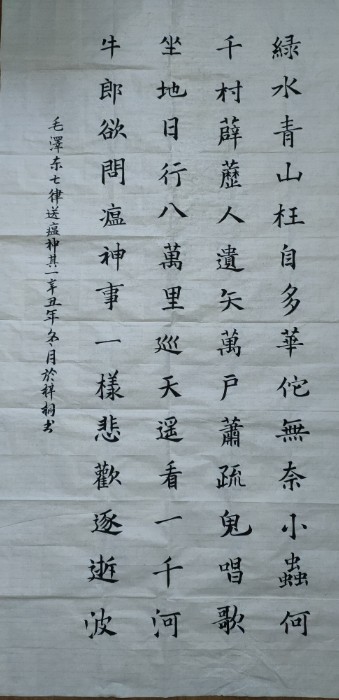 綠水青山枉自多華佗無奈小蟲何
千村薜藶人遺矢萬戶蕭疏鬼唱歌
坐地日行八萬里巡天遥看一千河
牛郎欲問瘟神事一樣悲歡逐逝波
毛澤东七律送瘟神其一辛丑年冬月於祥桐书